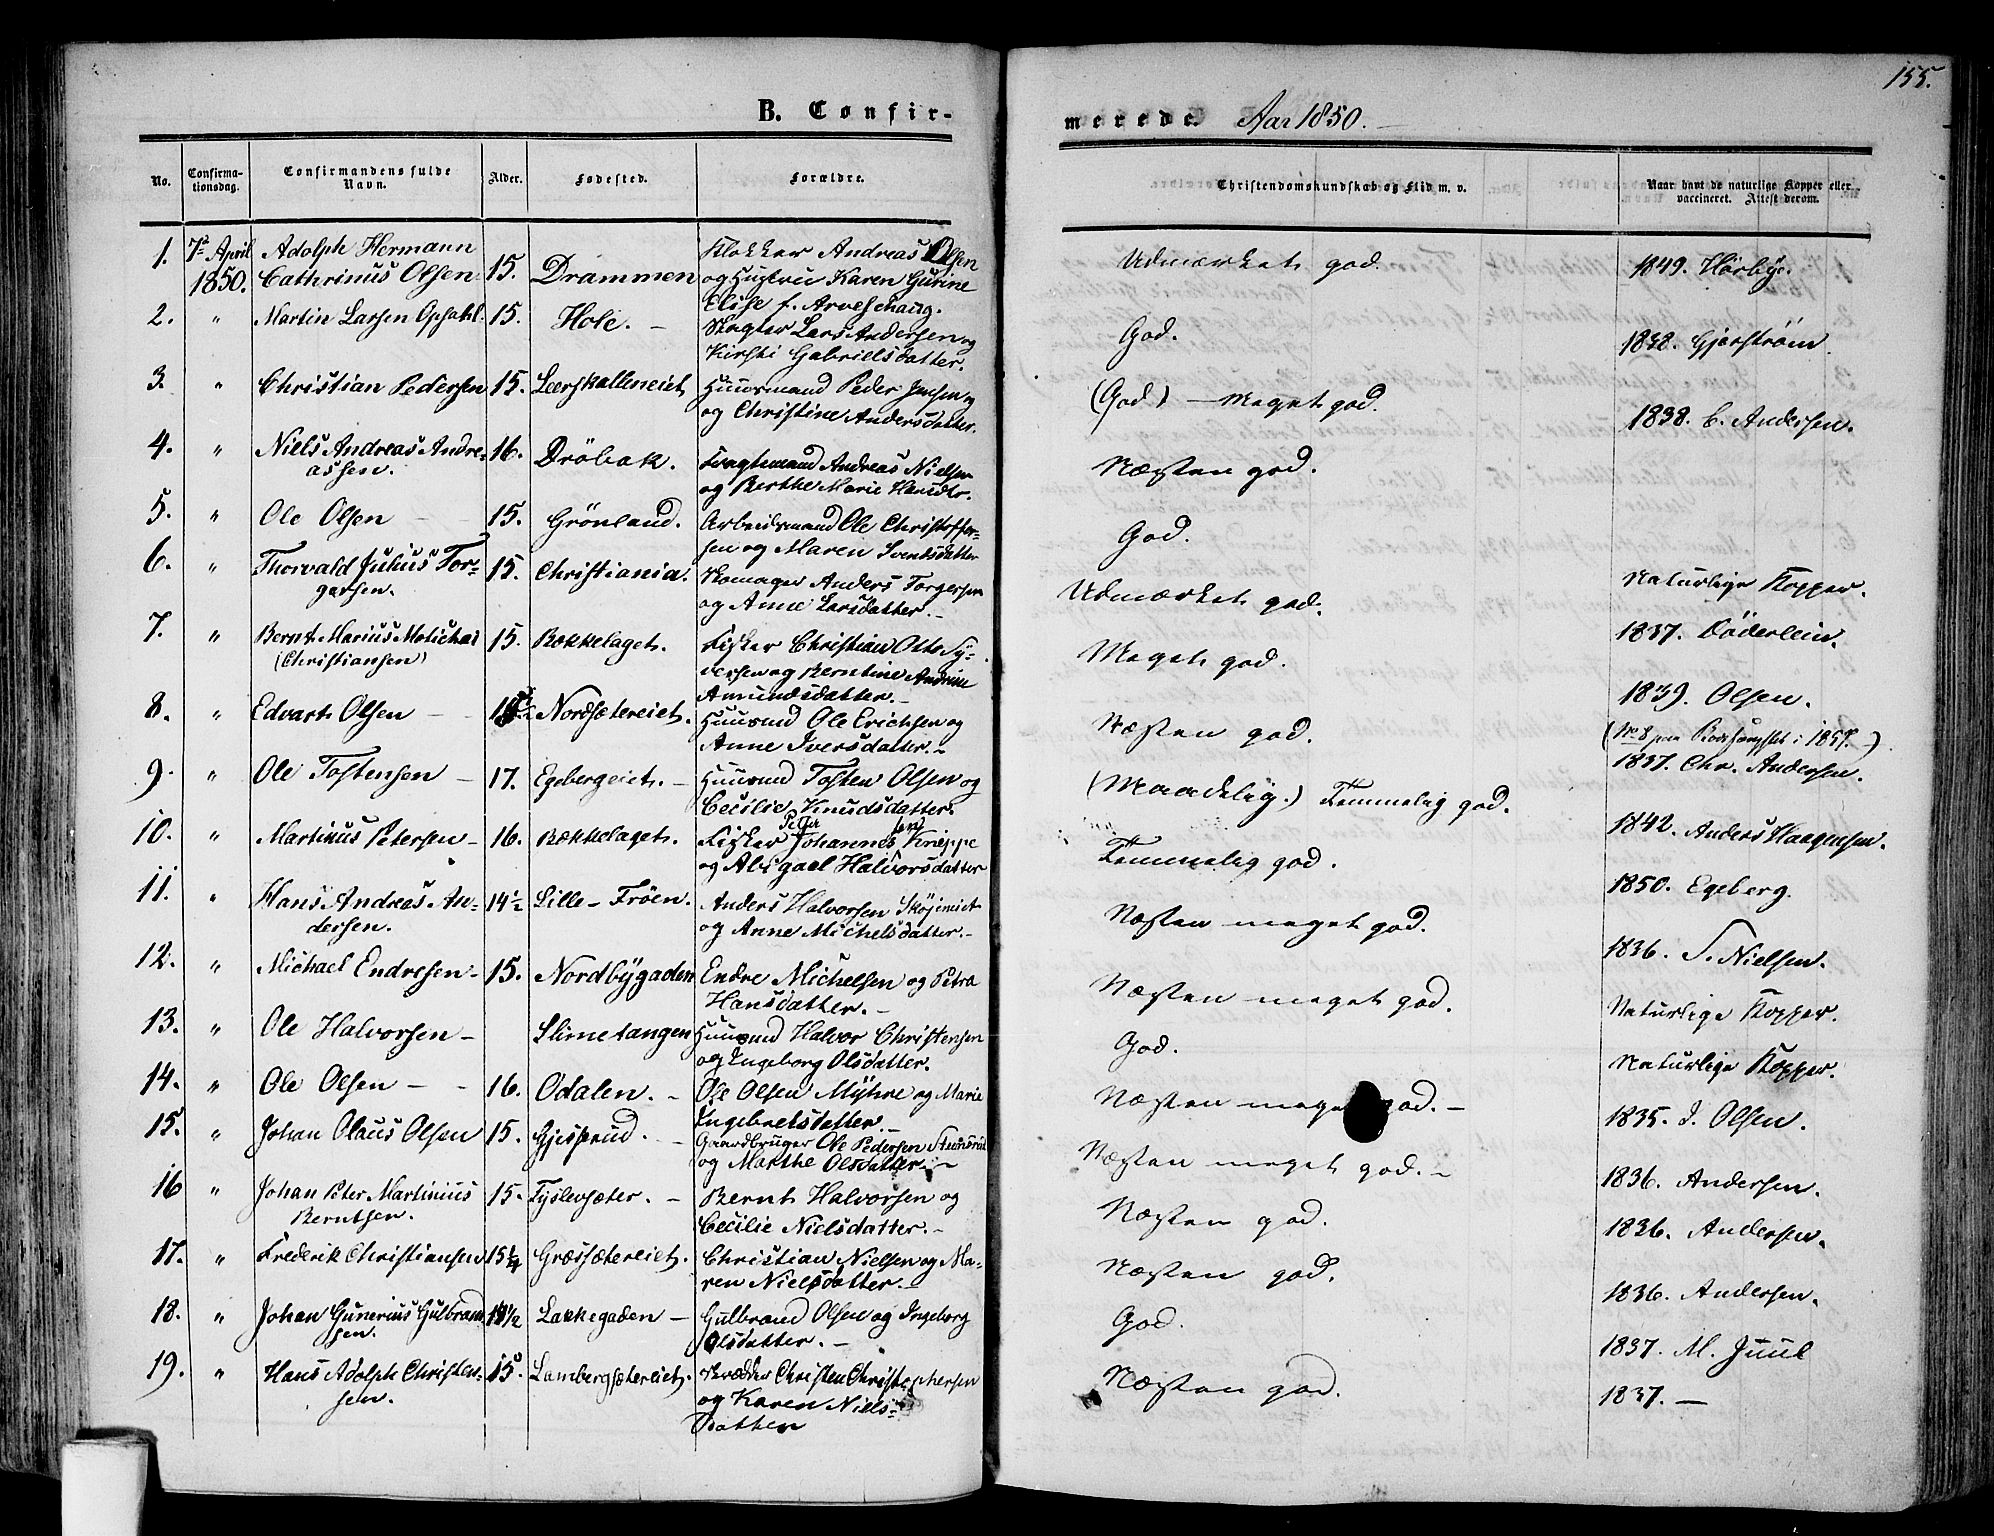 155.
B. Confir-
merede. Aar 1850. -
No. Confirma-tionsdag. Confirmandens fulde Navn. Alder. Fødested. Forældre. Christendomskundskab og Flid m. v. Naar havt de naturlige Kopper eller vaccineret. Attest derom.
1. 7de April Adolph Hermann Klokker Andreas Olsen
1850. Cathrinus Olsen 15. Drammen og Hustru Karen Gurine Udmærket god. 1849. Hörbye.
Elise f. Arveschaug.
2. " Martin Larsen Opsahl 15. Hole. - Lars Andersen og God. 1838. Gjerström.
Kirsti Gabrielsdatter.
3. " Christian Pedersen 15. Leerskalleneiet Huusmand Peder Jensen (God) - Meget god. 1838. C. Andersen.
og Christine Andersdatter.
4. " Niels Andreas Andre- 16. Dröbak. Fragtemand Andreas Nielsen Næsten god.
assen. og Berthe Marie Hansdtr.
5. " Ole Olsen - 15. Grönland. Arbeidsmand Ole Christoffer- God.
sen og Maren Svendsdatter
6. " Thorvald Julius Tor- 15. Christiania. Anders Torgersen Udmærket god. Naturlige Kopper.
gersen. og Anne Larsdatter. -
7. " Bernt Marius 15. Bekkelaget. Fisker Christian Otto Meget god. 1837. Döderlein.
(Christiansen) og Berntine Andrine
Amundsdatter. -
8. " Edvart Olsen - - Nordsætereiet. Huusmd Ole Erichsen og Næsten god. 1839. Olsen.
Anne Iversdatter. - (No 8 paa i 1857. -)
9. " Ole Tostensen - 17. Egebergeiet. - Huusmd Tosten Olsen og (Maadelig.) Temmelig god. 1837. Chr. Andersen.
Cecilie Knudsdatter.
10. " Martinus Petersen - 16. Bækkelaget. Fisker Petter Johannessen Kneppe Temmelig god. 1842. Anders Haagensen.
og Abigael Halvorsdatter
11. " Hans Andreas An- 14½ Lille-Fröen. Anders Halvorsen Sköjeneiet Næsten meget god. 1850. Egeberg.
dersen. og Anne Michelsdatter. -
12. " Michael Endresen - 15. Nordbygaden Endre Michelsen og Petra Næsten meget god. 1836. S. Nielsen.
Hansdatter. -
13. " Ole Halvorsen - Slimetangen Huusmd Halvor Christensen God. Naturlige Kopper.
og Ingeborg Olsdatter.
14. " Ole Olsen - - 16. Odalen. - Ole Olsen Myhre og Marie Næsten meget god. - Naturlige Kopper.
Ingebretsdatter. -
15. " Johan Olaus Olsen 15. Gjessrud. - Gaardbruger Ole Pedersen Stensrud Næsten meget god. - 1835. J. Olsen.
og Marthe Olsdatter. -
16 " Johan Peter Martinius 15. - - Bernt Halvorsen og Næsten god. 1836. Andersen.
Berntsen. Cecilie Nielsdatter. -
17. " Frederik Christiansen 15¼ Græssætereiet. Christian Nielsen og Ma- Næsten god. 1836. Andersen.
ren Nielsdatter. -
18. " Johan Gunerius Gulbrand- 14½ Lakkegaden - Gulbrand Olsen og Ingeborg God. 1836. Andersen.
sen. Olsdatter. -
19. " Hans Adolph Christen- 15. Lambergsætereiet. Skrædder Christen Christophersen Næsten god. 1837. M. Juul
sen. og Karen Niels- 1837. -
datter